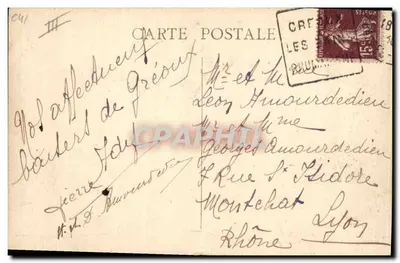 C41
III
CARTE POSTALE
GREOUX
LES
15c
Nos affectueux
baisers de Gréoux
Pierre
Mr et M
Léon Amourdedieu
Mr et Mme
Georges Amourdedieu
7 Rue St Isidore
Montchat Lyon
Rhône
CPAPHIL